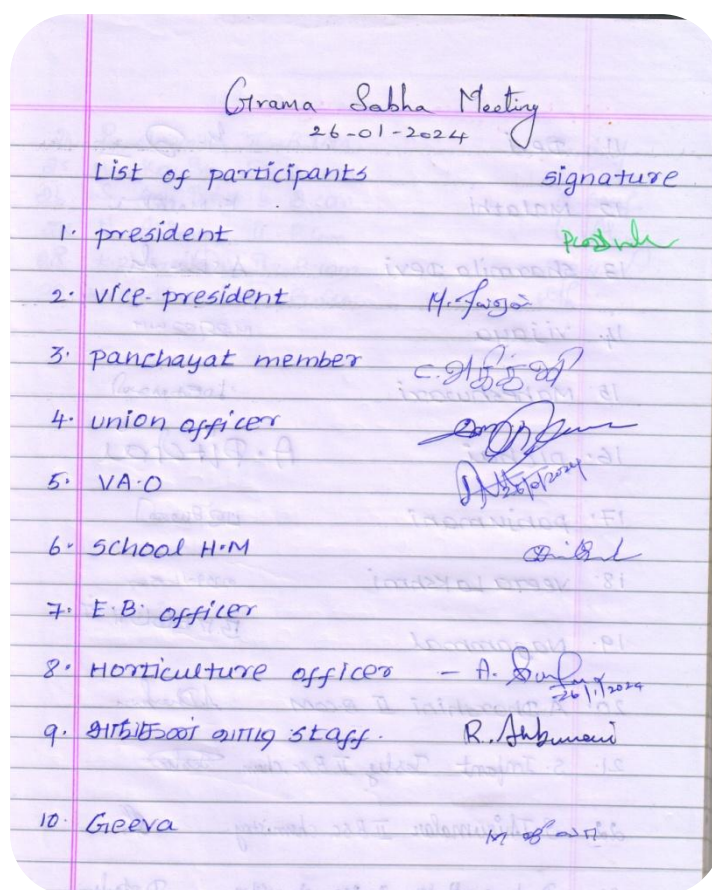 Grama Sabha Meeting
26-01-2024
List of participants signature
1. president
2. vice-president M.
3. panchayat member
4. union officer
5. VA.O
6. School H.M
7. E.B. officer
8. Horticulture officer - A. 26/1/2024
9. அங்கன் வாடி staff. R. Anbumani
10. Geeva M ஜீவா